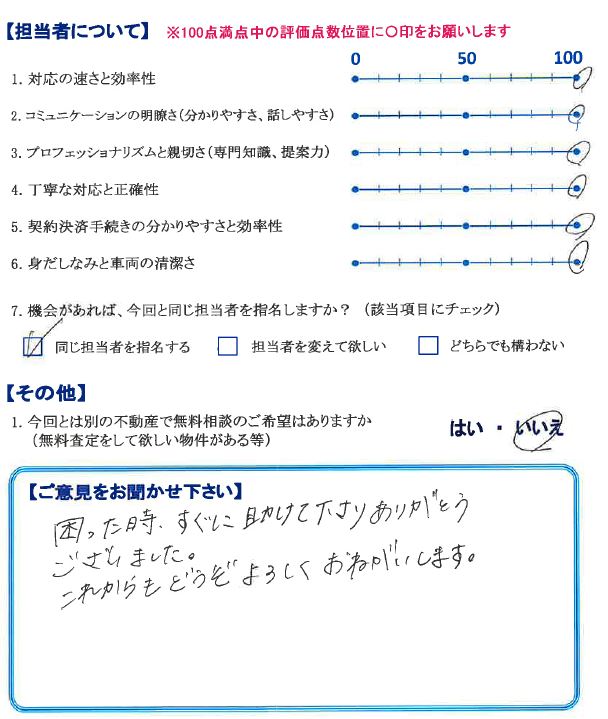 【担当者について】 ※100点満点中の評価点数位置に○印をお願いします
0 50 100
1. 対応の速さと効率性
2. コミュニケーションの明瞭さ(分かりやすさ、話しやすさ)
3. プロフェッショナリズムと親切さ(専門知識、提案力)
4. 丁寧な対応と正確性
5. 契約決済手続きの分かりやすさと効率性
6. 身だしなみと車両の清潔さ
7. 機会があれば、今回と同じ担当者を指名しますか? (該当項目にチェック)
同じ担当者を指名する 担当者を変えて欲しい どちらでも構わない
【その他】
1. 今回とは別の不動産で無料相談のご希望はありますか
(無料査定をして欲しい物件がある等)
はい ・ いいえ
【ご意見をお聞かせ下さい】
困った時、すぐに助けて下さりありがとう
ございました。
これからもどうぞよろしくおねがいします。